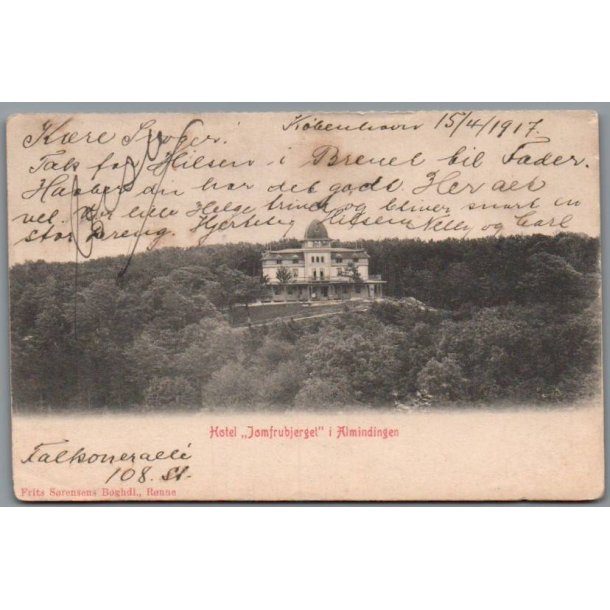 København 15/4/1917.
Kære
Tak for Hilsen i Brevet til Fader.
Haaber du har det godt. Her alt
vel. lille Helge trives og bliver snart en
stor Dreng. Hjertelig Hilsen Nelly og Carl
Hotel „Jomfrubjerget" i Almindingen
Falkoneralle
108. St.
Frits Sørensens Boghdl., Rønne